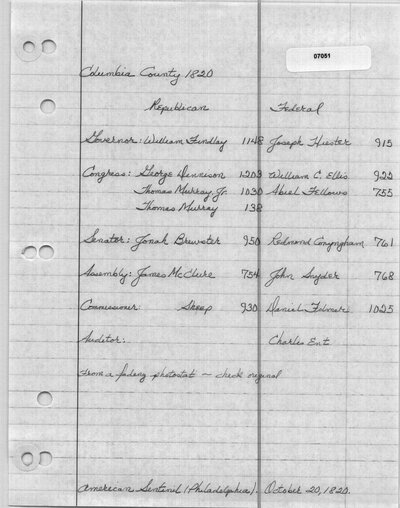 07051
Columbia County 1820
Republican Federal
Governor: William Findlay 1148 Joseph Hiester 915
Congress: George Dennison 1203 William C. Ellis 922
Thomas Murray, Jr. 1030 Abiel Fellows 755
Thomas Murray 138
Senator: Jonah Brewster 950 Redmond Conyngham 761
Assembly: James McClure 754 John Snyder 768
Commissioner: 930 Daniel 1025
Auditor: Charles Ent
From a fading photostat - check original
American Sentinel (Philadelphia). October 20, 1820.